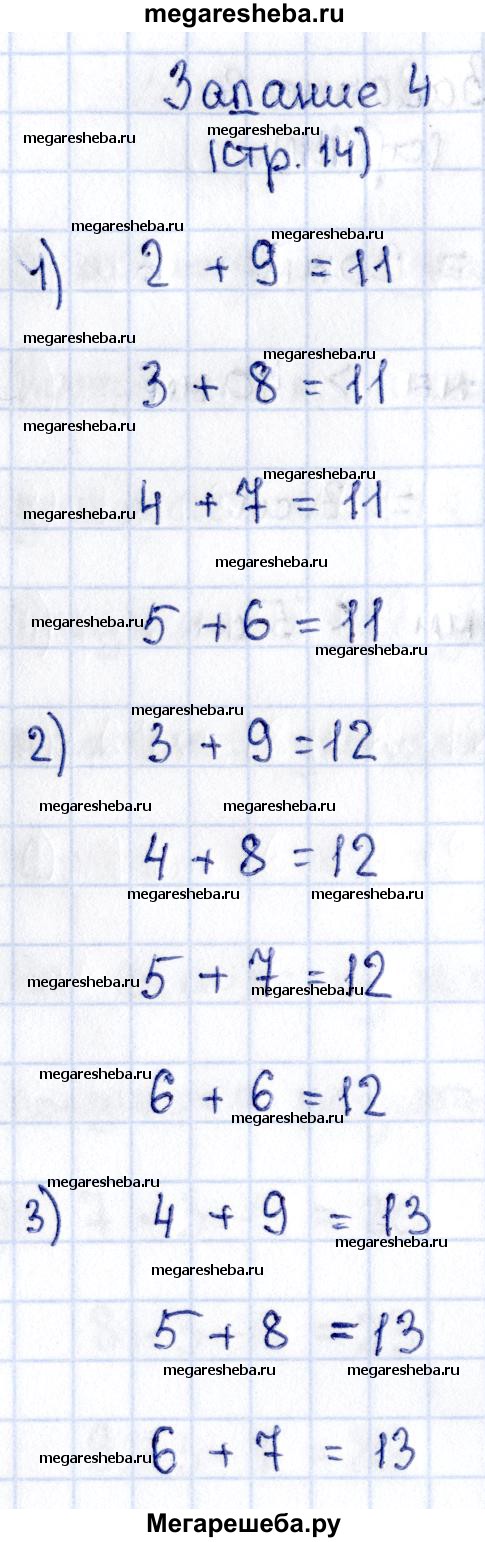 megaresheba.ru
Запание 4
megaresheba.ru megaresheba.ru
(стр. 14)
megaresheba.ru megaresheba.ru
1) 2 + 9 = 11
megaresheba.ru megaresheba.ru
3 + 8 = 11
megaresheba.ru
megaresheba.ru
megaresheba.ru 4 + 7 = 11
megaresheba.ru
megaresheba.ru 5 + 6 = 11
megaresheba.ru
megaresheba.ru
2) 3 + 9 = 12
megaresheba.ru megaresheba.ru
4 + 8 = 12
megaresheba.ru megaresheba.ru
megaresheba.ru 5 + 7 = 12
megaresheba.ru
megaresheba.ru
6 + 6 = 12
megaresheba.ru
megaresheba.ru
3) 4 + 9 = 13
megaresheba.ru
megaresheba.ru
5 + 8 = 13
megaresheba.ru megaresheba.ru
megaresheba.ru 6 + 7 = 13
Мегарешеба.ру